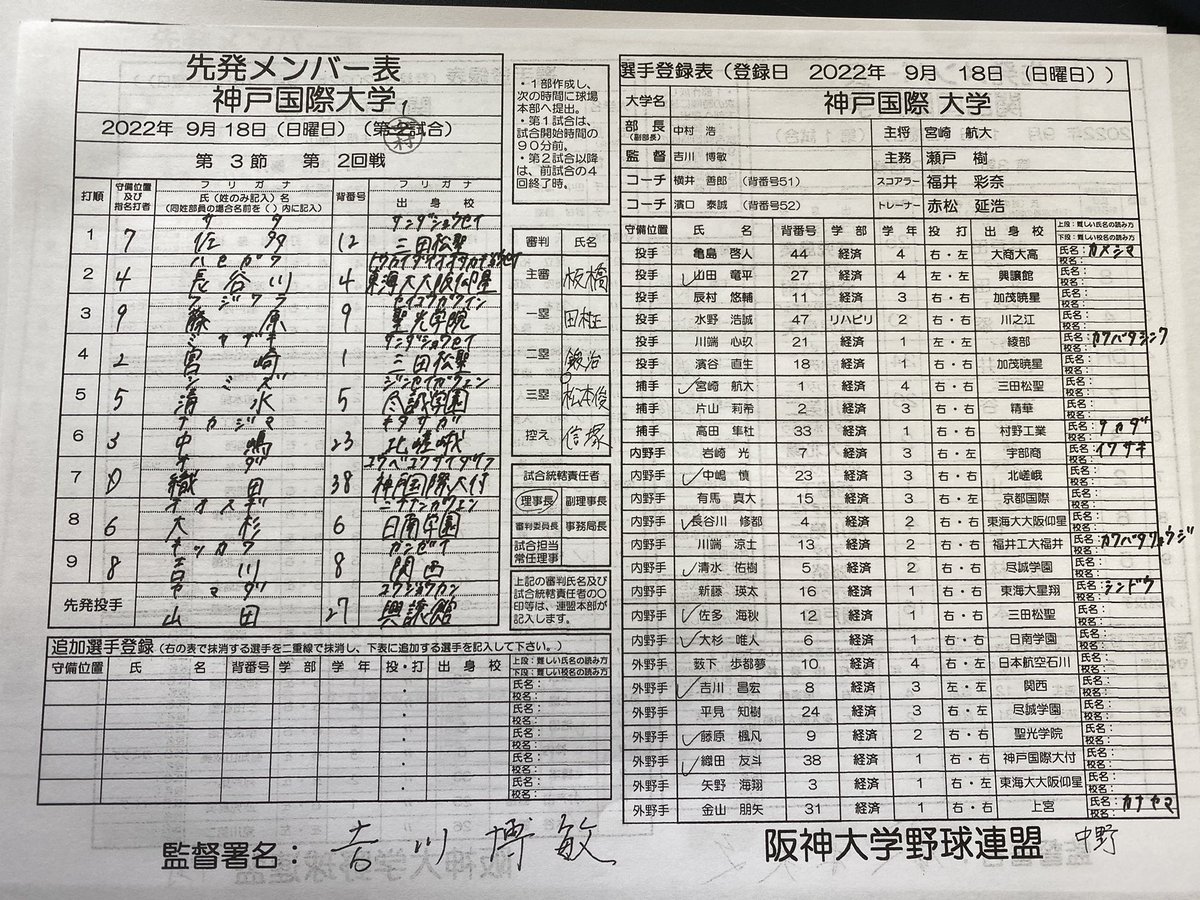 先発メンバー表
神戸国際大学
2022年 9月 18日（日曜日）（第1試合）
村
第 3 節 第 2回戦
打順 守備位置及び指名打者 フリガナ 氏（姓のみ記入）名（同姓部員の場合名前を（ ）内に記入） 背番号 フリガナ 出身校
サタ サンダショウセイ
1 7 佐多 12 三田松聖
ハセガワ トウカイダイオオサカギョウセイ
2 4 長谷川 4 東海大大阪仰星
フジワラ セイコウガクイン
3 9 藤原 9 聖光学院
ミヤザキ サンダショウセイ
4 2 宮崎 1 三田松聖
シミズ ジンセイガクエン
5 5 清水 5 尽誠学園
ナカジマ キタサガ
6 3 中嶋 23 北嵯峨
オダ コウベコクサイダイフ
7 D 織田 38 神戸国際大付
オオスギ ニチナンガクエン
8 6 大杉 6 日南学園
キッカワ カンゼイ
9 8 吉川 8 関西
ヤマダ コウジョウカン
先発投手 山田 27 興譲館
・1部作成し、
次の時間に球場
本部へ提出。
・第1試合は、
試合開始時間の
90分前。
・第2試合以降
は、前試合の4
回終了時。
審判 氏名
主審 板橋
一塁 田村正
二塁 鍛治
三塁 松本俊
控え 信塚
試合統轄責任者
理事長 副理事長
審判委員長 事務局長
試合担当
常任理事
上記の審判氏名及び
試合統轄責任者の○
印等は、連盟本部が
記入します。
追加選手登録（右の表で抹消する選手を二重線で抹消し、下表に追加する選手を記入して下さい。）
守備位置 氏 名 背番号 学 部 学 年 投・打 出 身 校 上段：難しい氏名の読み方
下段：難しい校名の読み方
・ 氏名：
校名：
・ 氏名：
校名：
・ 氏名：
校名：
・ 氏名：
校名：
・ 氏名：
校名：
監督署名： 吉川 博敏
選手登録表（登録日 2022年 9月 18日（日曜日））
大学名 神戸国際 大学
部 長（副部長） 中村 浩 主将 宮崎 航大
監 督 吉川 博敏 主務 瀬戸 樹
コーチ 横井 善郎 （背番号51） スコアラー 福井 彩奈
コーチ 濱口 泰誠 （背番号52） トレーナー 赤松 延浩
守備位置 氏 名 背番号 学 部 学 年 投 打 出 身 校 上段：難しい氏名の読み方
下段：難しい校名の読み方
投手 亀島 啓人 44 経済 4 右・左 大商大高 氏名：カメシマ
校名：
投手 ✓山田 竜平 27 経済 4 左・左 興譲館 氏名：
校名：
投手 辰村 悠輔 11 経済 3 右・右 加茂暁星 氏名：
校名：
投手 水野 浩誠 47 リハビリ 2 右・右 川之江 氏名：
校名：
投手 川端 心玖 21 経済 1 左・左 綾部 氏名：カワバタシンク
校名：
投手 濱谷 直生 18 経済 1 右・右 加茂暁星 氏名：
校名：
捕手 ✓宮崎 航大 1 経済 4 右・右 三田松聖 氏名：
校名：
捕手 片山 莉希 2 経済 3 右・右 精華 氏名：
校名：
捕手 高田 隼杜 33 経済 1 右・右 村野工業 氏名：タカダ
校名：
内野手 岩崎 光 7 経済 3 右・左 宇部商 氏名：イワサキ
校名：
内野手 ✓中嶋 慎 23 経済 3 右・右 北嵯峨 氏名：
校名：
内野手 有馬 真大 15 経済 3 右・左 京都国際 氏名：
校名：
内野手 ✓長谷川 修都 4 経済 2 右・右 東海大大阪仰星 氏名：
校名：
内野手 川端 涼士 13 経済 2 右・右 福井工大福井 氏名：カワバタリョウジ
校名：
内野手 ✓清水 佑樹 5 経済 2 右・右 尽誠学園 氏名：
校名：
内野手 新藤 瑛太 16 経済 1 右・右 東海大星翔 氏名：シンドウ
校名：
内野手 ✓佐多 海秋 12 経済 1 右・右 三田松聖 氏名：
校名：
内野手 ✓大杉 唯人 6 経済 1 右・右 日南学園 氏名：
校名：
外野手 薮下 歩都夢 10 経済 4 右・左 日本航空石川 氏名：
校名：
外野手 ✓吉川 昌宏 8 経済 3 左・左 関西 氏名：
校名：
外野手 平見 知樹 24 経済 3 右・左 尽誠学園 氏名：
校名：
外野手 ✓藤原 楓凡 9 経済 2 右・右 聖光学院 氏名：
校名：
外野手 ✓織田 友斗 38 経済 1 右・右 神戸国際大付 氏名：
校名：
外野手 矢野 海翔 3 経済 1 右・左 東海大大阪仰星 氏名：
校名：
外野手 金山 朋矢 31 経済 1 右・右 上宮 氏名：カナヤマ
校名：
阪神大学野球連盟 中野